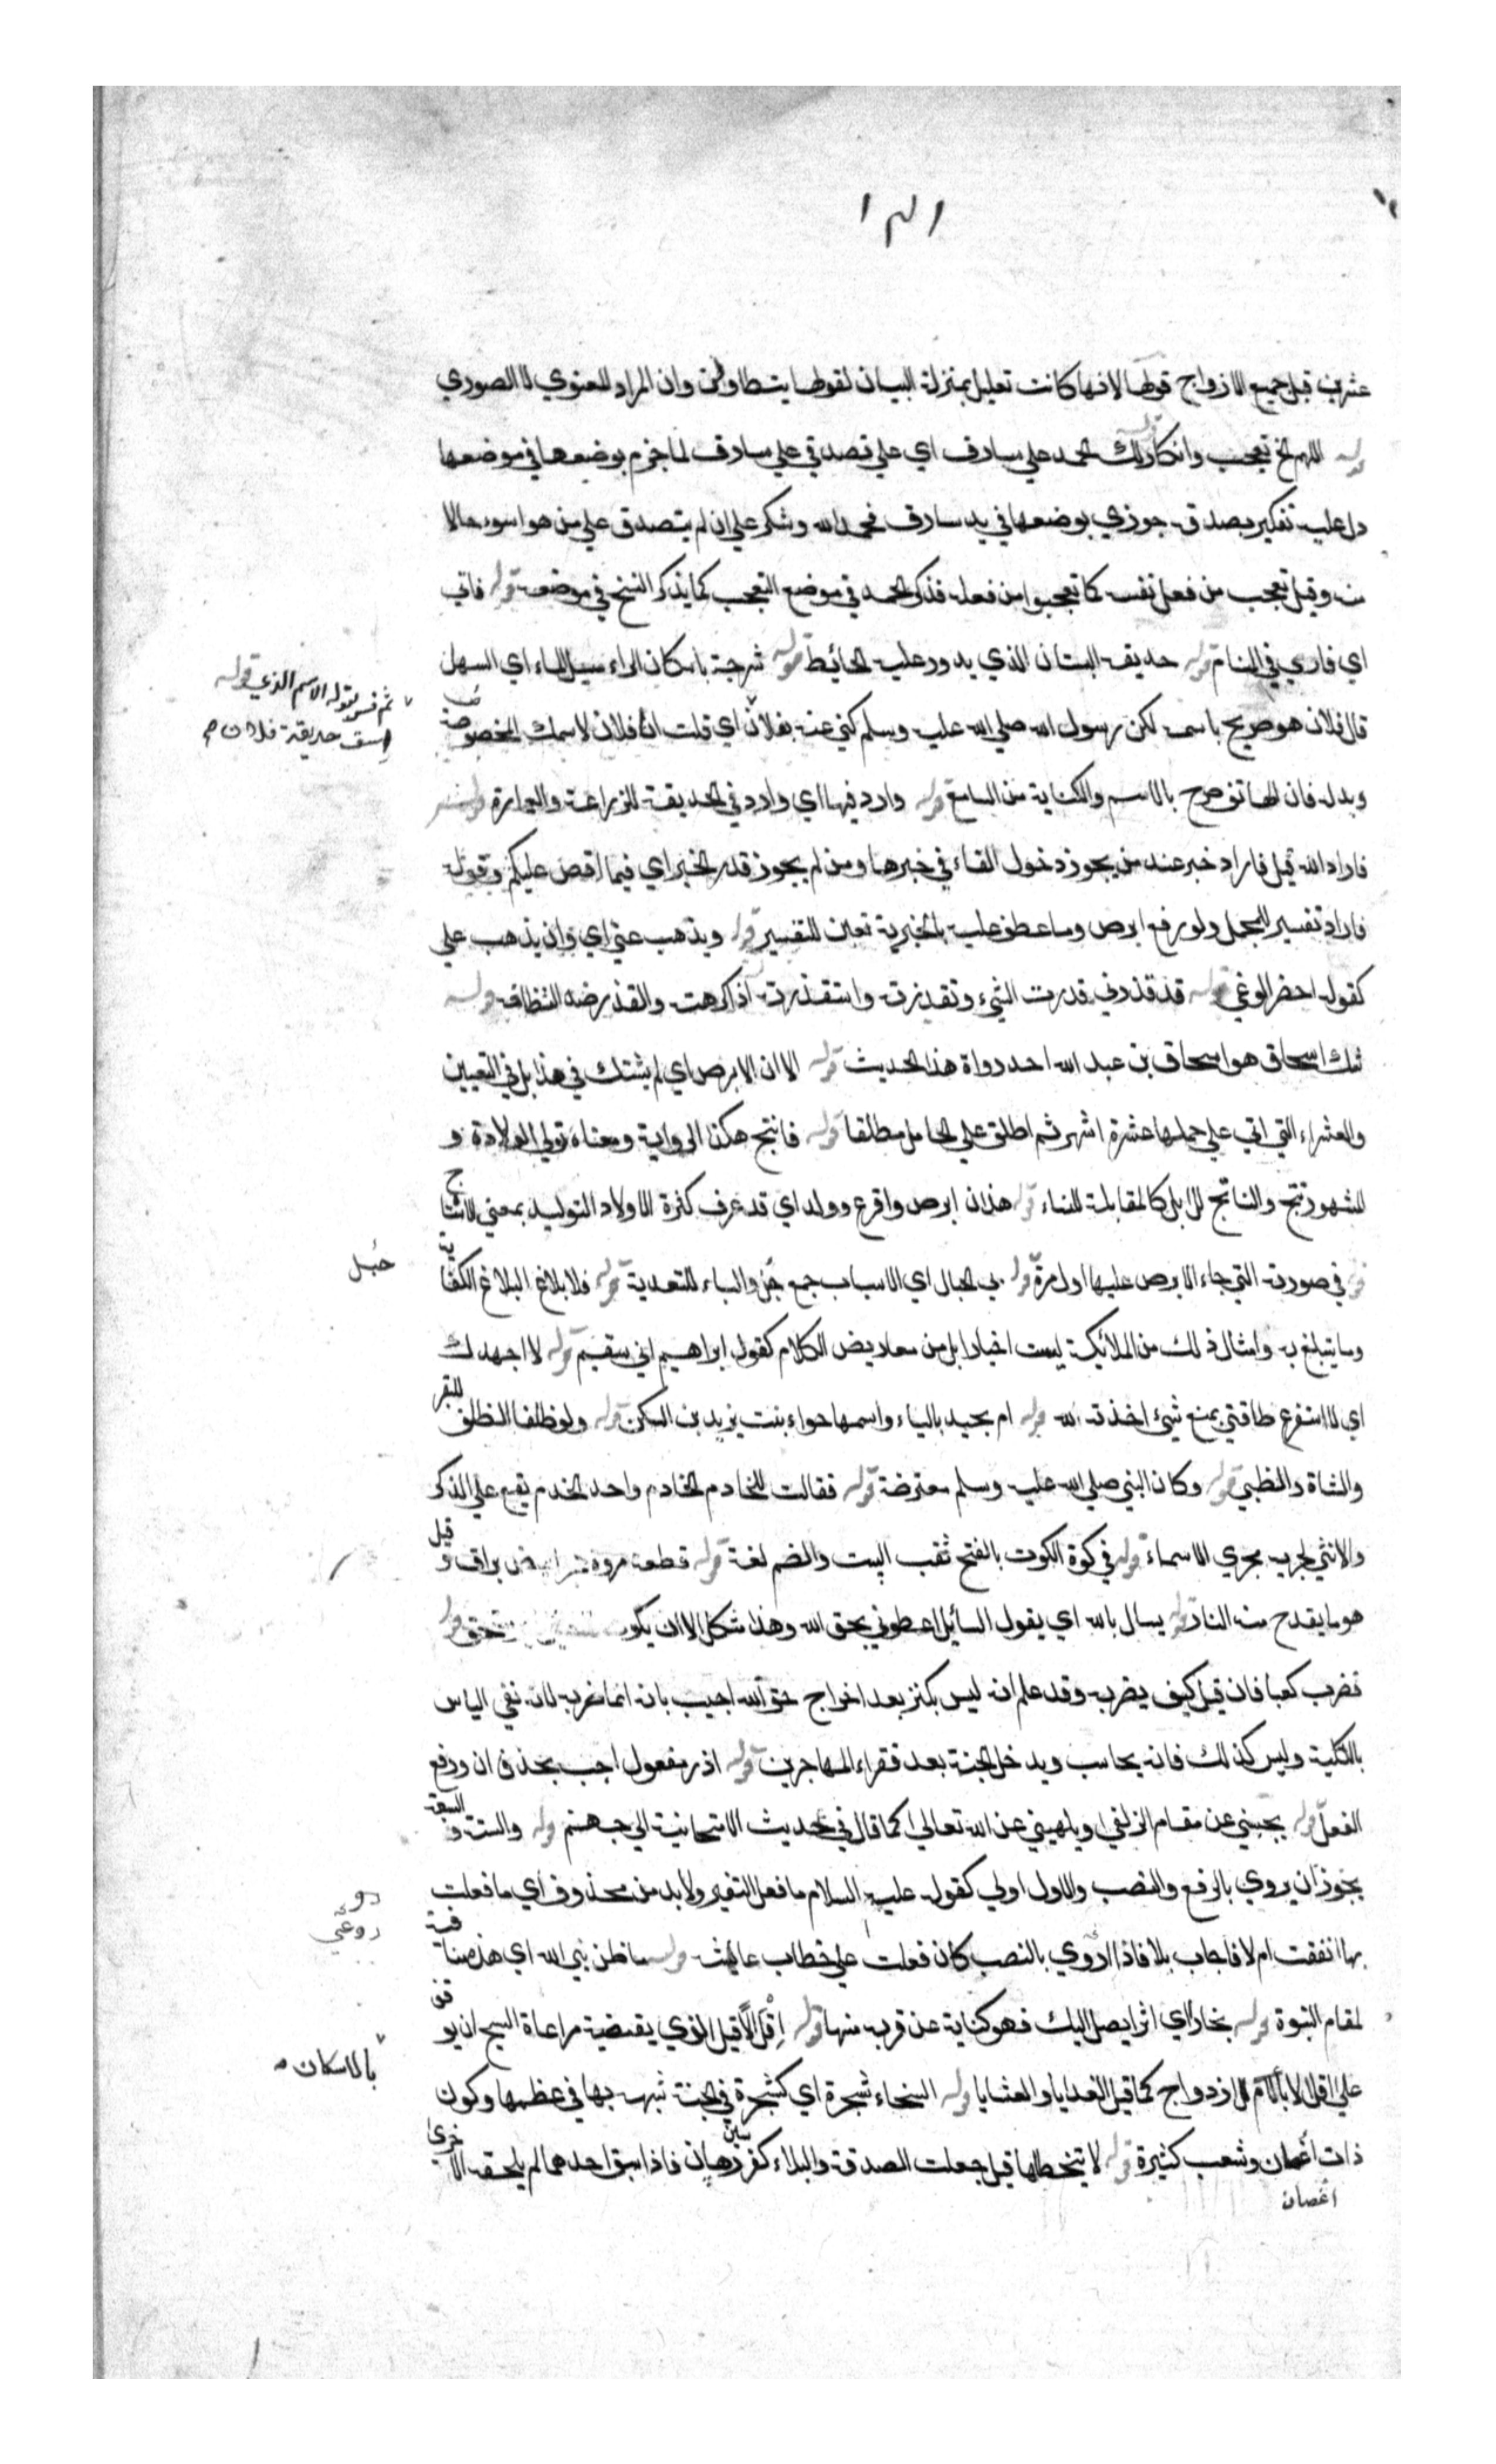 ١٣١
عشرين قبل جميع الازواج قولها لانها كانت تعليل بمنزلة البيان لقولها يتطاولن وان المراد المعنوي لا الصوري
قوله اللهم الخ تعجب وانكار لك الحمد علي سارق اي علي تصدقي علي سارق لما جزم بوضعها في موضعها
دل عليه تنكير بصدقة جوزي بوضعها في يد سارق فحمد الله وشكر علي ان لم يتصدق علي من هو اسوء حالا
منه وقيل تعجب من فعل نفسه كما تعجبوا من فعله فذكر الحمد في موضع التعجب كما يذكر التسبيح في موضعه قوله فاتي
اي فاري في المنام قوله حديقة البستان الذي يدور عليه الحائط قوله شرجة باسكان الراء مسيل الماء اي السهل
ثم فسر بقوله الاسم الذي قوله
اسق حديقة فلان صح
قال فلان هو صريح باسمه لكن رسول الله صلي الله عليه وسلم كني عنه بفلان اي قلت اي فلان لاسمك المخصوصة
وبدله فان الهاتف صرح بالاسم والكناية من السامع قوله وارد فيها اي وارد في الحديقة للزراعة والعمارة قوله
فاراد الله قيل فاراد خبر عند من يجوز دخول الفاء في خبرها ومن لم يجوز قدر الخبر اي فيما اقص عليكم وقوله
فاراد تفسير المجمل ولو رفع ابرص وما عطف عليه بالخبرية تعين للتفسير قوله ويذهب عني اي وان يذهب علي
كقوله احضر الوغي قوله قد قذرني قذرت الشيء وتقذرت واستقذرته اذا كرهته والقذر ضد النظافة قوله
شك اسحاق هو اسحاق بن عبد الله احد رواة هذا الحديث قوله الا ان الابرص اي لم يشك في هذا بل في التعيين
والعشراء التي اتي علي حملها عشرة اشهر ثم اطلق علي الحامل مطلقا قوله فانتج هكذا الرواية ومعناه تولي الولادة و
المشهور نتج والناتج للابل كالمقابلة للنساء قوله هذان ابرص واقرع وولد اي قد عرف كثرة الاولاد التوليد بمعني الانتاج
قوله في صورته التي جاء الابرص عليها اول مرة قوله بي الحبال اي الاسباب جمع حبل والباء للتعدية قوله فلا بلاغ البلاغ الكفاية
حبل
وما يتبلغ به وامثال ذلك من الملائكة ليست اخبارا بل من معاريض الكلام كقول ابراهيم اني سقيم قوله لا اجهدك
اي لا استفرغ طاقتي بمنع شيء اخذته لله قوله ام بجيد بالياء واسمها حواء بنت يزيد بن السكن قوله ولو ظلفا الظلف للبقر
والشاة والظبي قوله وكان النبي صلي الله عليه وسلم معترضة قوله فقالت للخادم الخادم واحد الخدم يقع علي الذكر
والانثي لجريه مجري الاسماء قوله في كوة الكوت بالفتح ثقب البيت والضم لغة قوله قطعة مروة ابيض براق وقيل
هو ما يقدح منه النار قوله يسال بالله اي يقول السائل اعطوني بحق الله وهذا شكل الا ان يكون قوله
فضرب كعبا فان قيل كيف يضربه وقد علم انه ليس بكنز بعد اخراج حق الله اجيب بان انما ضربه لانه نفي الباس
بالكلية وليس كذلك فانه يحاسب ويدخل الجنة بعد فقراء المهاجرين قوله اذر مفعول احب بحذف ان ورفع
الفعل قوله يحبسني عن مقام الزلفي او يلهيني عن الله تعالي كما قال في حديث الانبجانية الي جهنم قوله والستة و السبعة
يجوز ان يروي بالرفع والنصب والاول اولي كقوله عليه السلام ما فعل النغير ولا بد من محذوف اي ما فعلت
بها انفقت ام لا فاجاب بلا فاذا روي بالنصب كان فعلت علي خطاب عائشة قوله ما ظن نبي الله اي هذه منافية
لمقام النبوة قوله بخارا اي اثرا يصل اليك فهو كناية عن قربه منها قوله اقلالا قيل الذي يقتضيه مراعاة السجع ان يوقف
بالاسكان
علي اقلالا بالام للازدواج كما قيل الغدايا والعشايا قوله السخاء شجرة اي كشجرة في الجنة شبهه بها في عظمها وكون
ذات اغصان وشعب كثيرة قوله لا يتخطاها قيل جعلت الصدقة والبلاء كفرسي رهان فاذا سبق احدهما لم يلحقه الاخري
اغصان